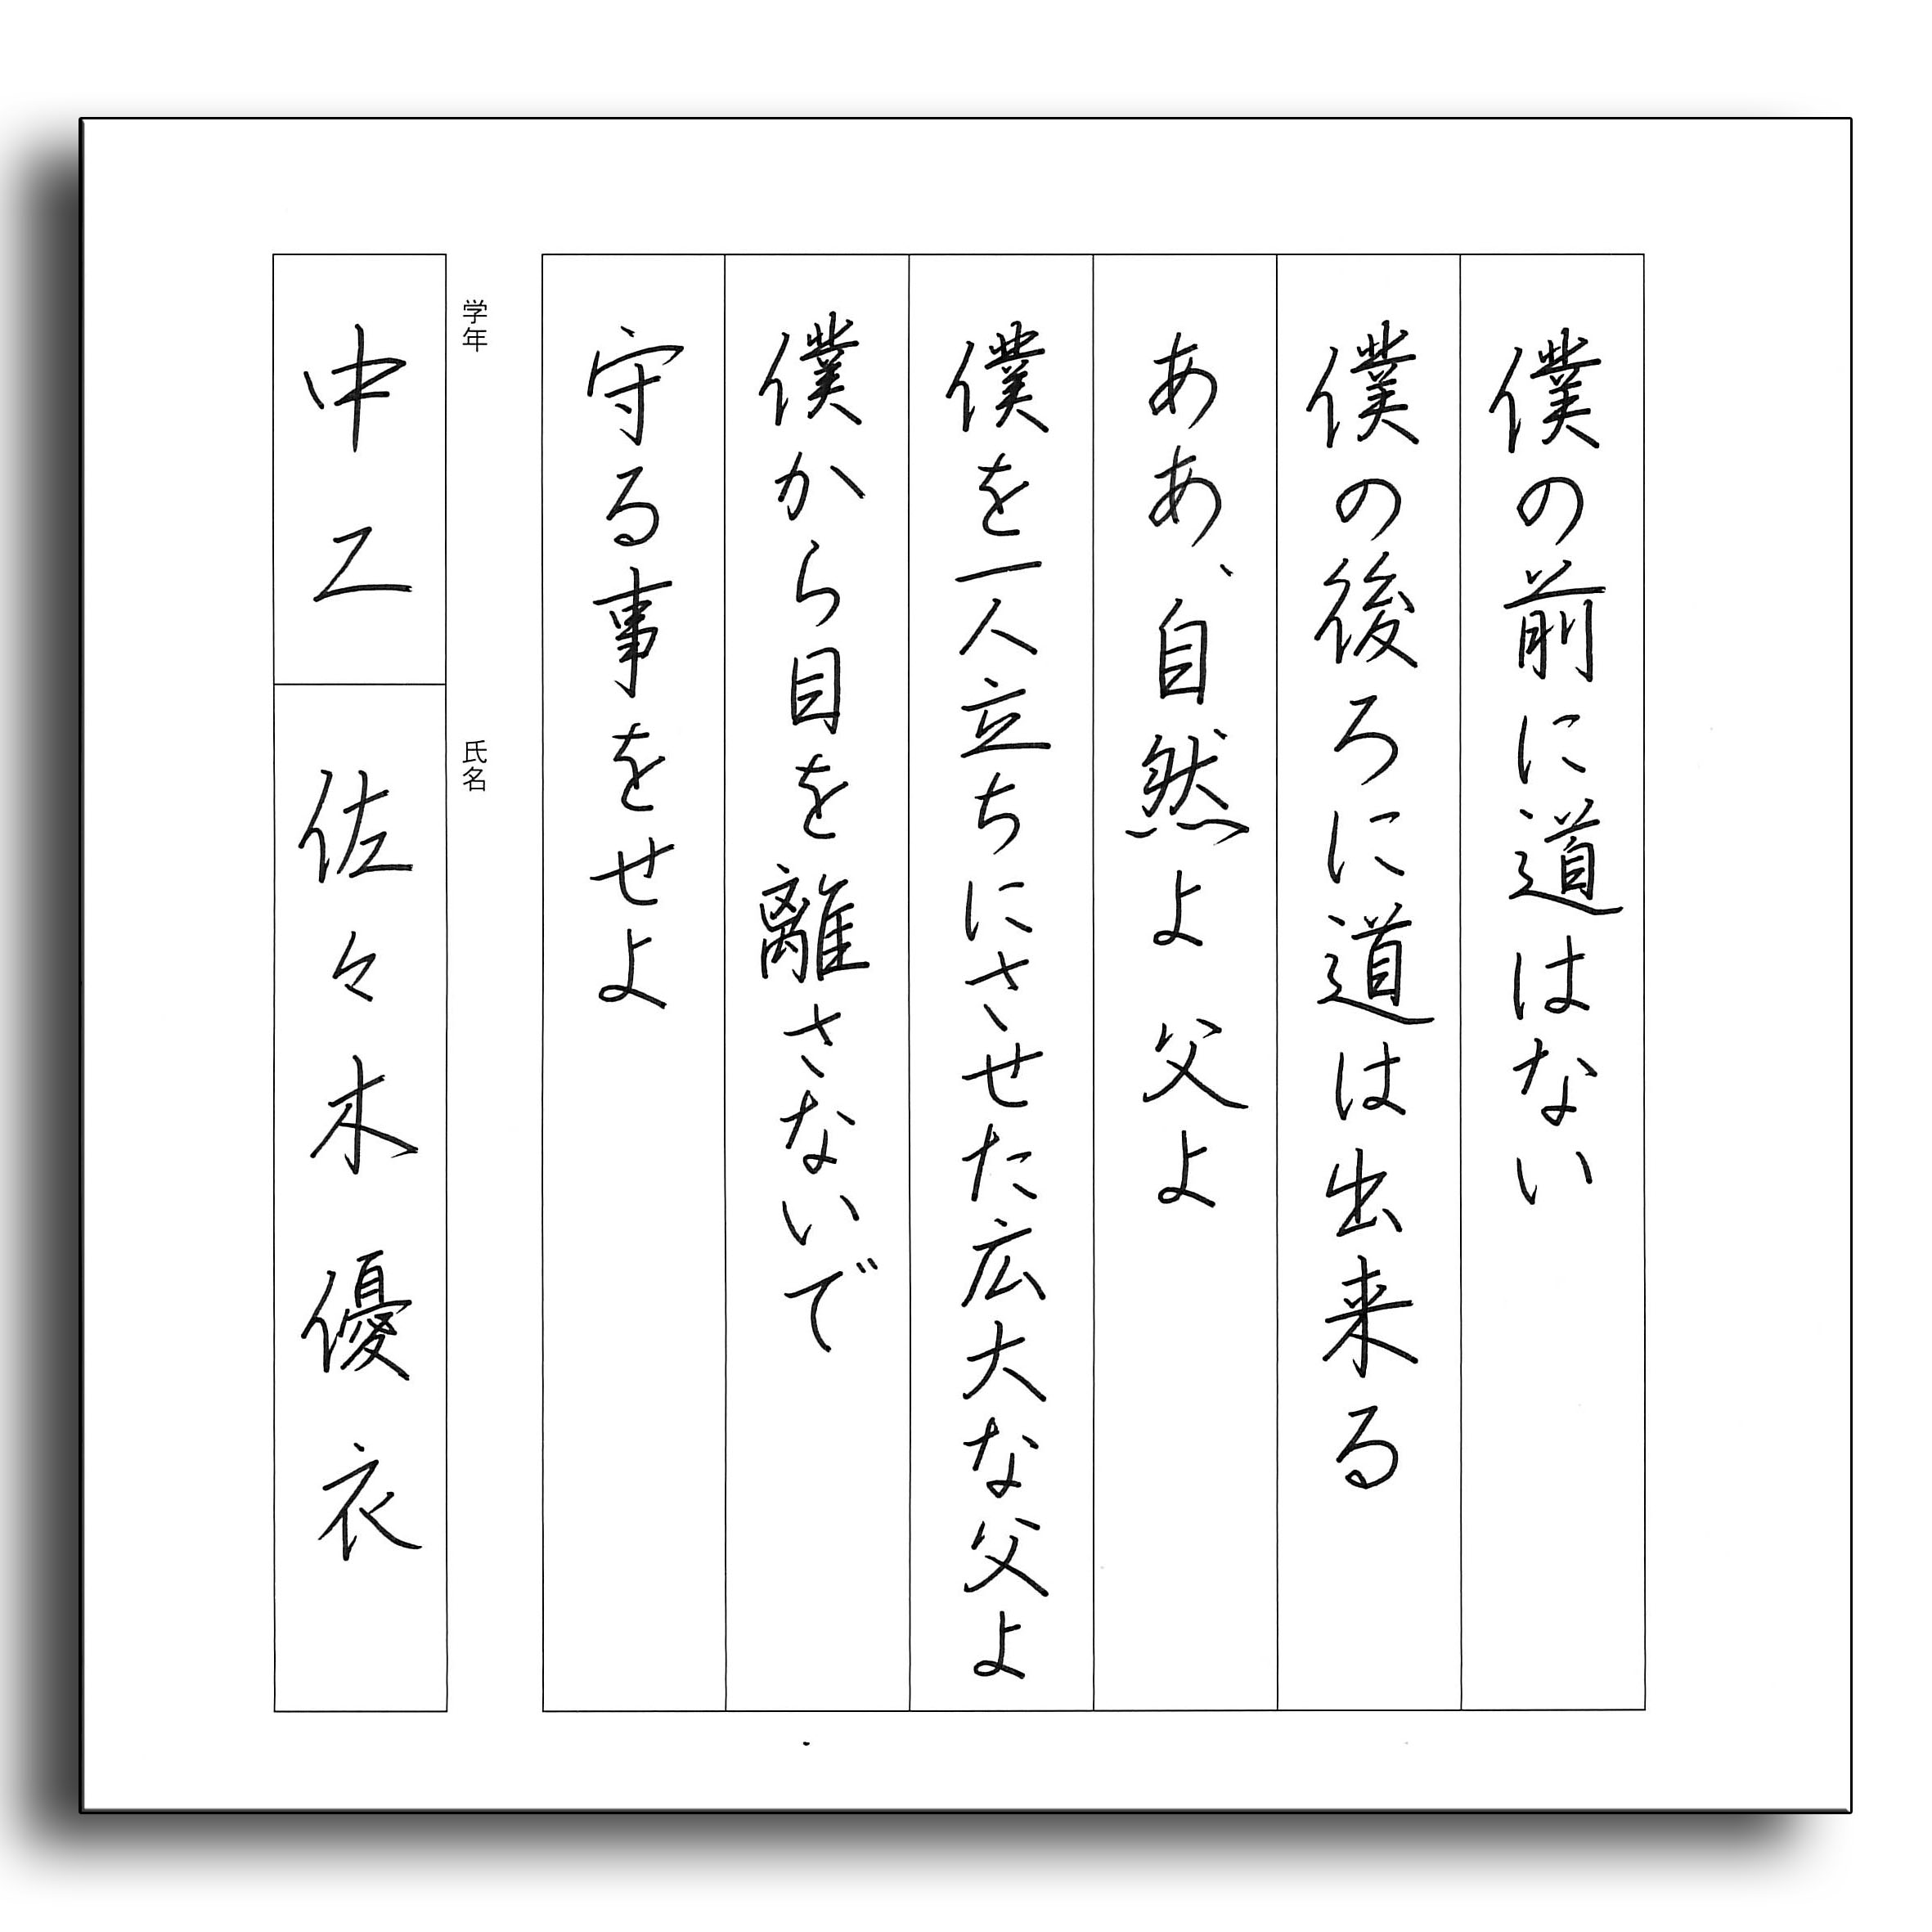 僕の前に道はない
僕の後ろに道は出来る
ああ、自然よ 父よ
僕を一人立ちにさせた広大な父よ
僕から目を離さないで
守る事をせよ
学年
中二
氏名
佐々木優衣